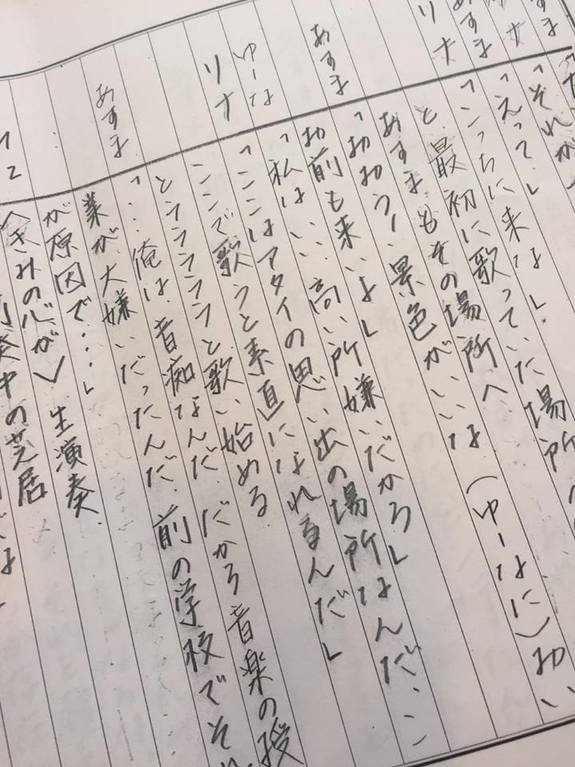 「それが」
「えっ?」
リナ 「こっちに来な」
と最初に歌っていた場所へ
あすま あすまもその場所へ（ゆーなに）おい
「おおう、景色がいいな
お前も来いよ」
ゆーな 「私はいい、高い所嫌いだから」
リナ 「ここはアタイの思い出の場所なんだ、ここ
ここで歌うと素直になれるんだ」
とララララと歌い始める
あすま 「…俺は、音痴なんだ、だから音楽の授
業が大嫌いだったんだ、前の学校でそれ
が原因で…」
きみの心が 生演奏
奏中の芝居